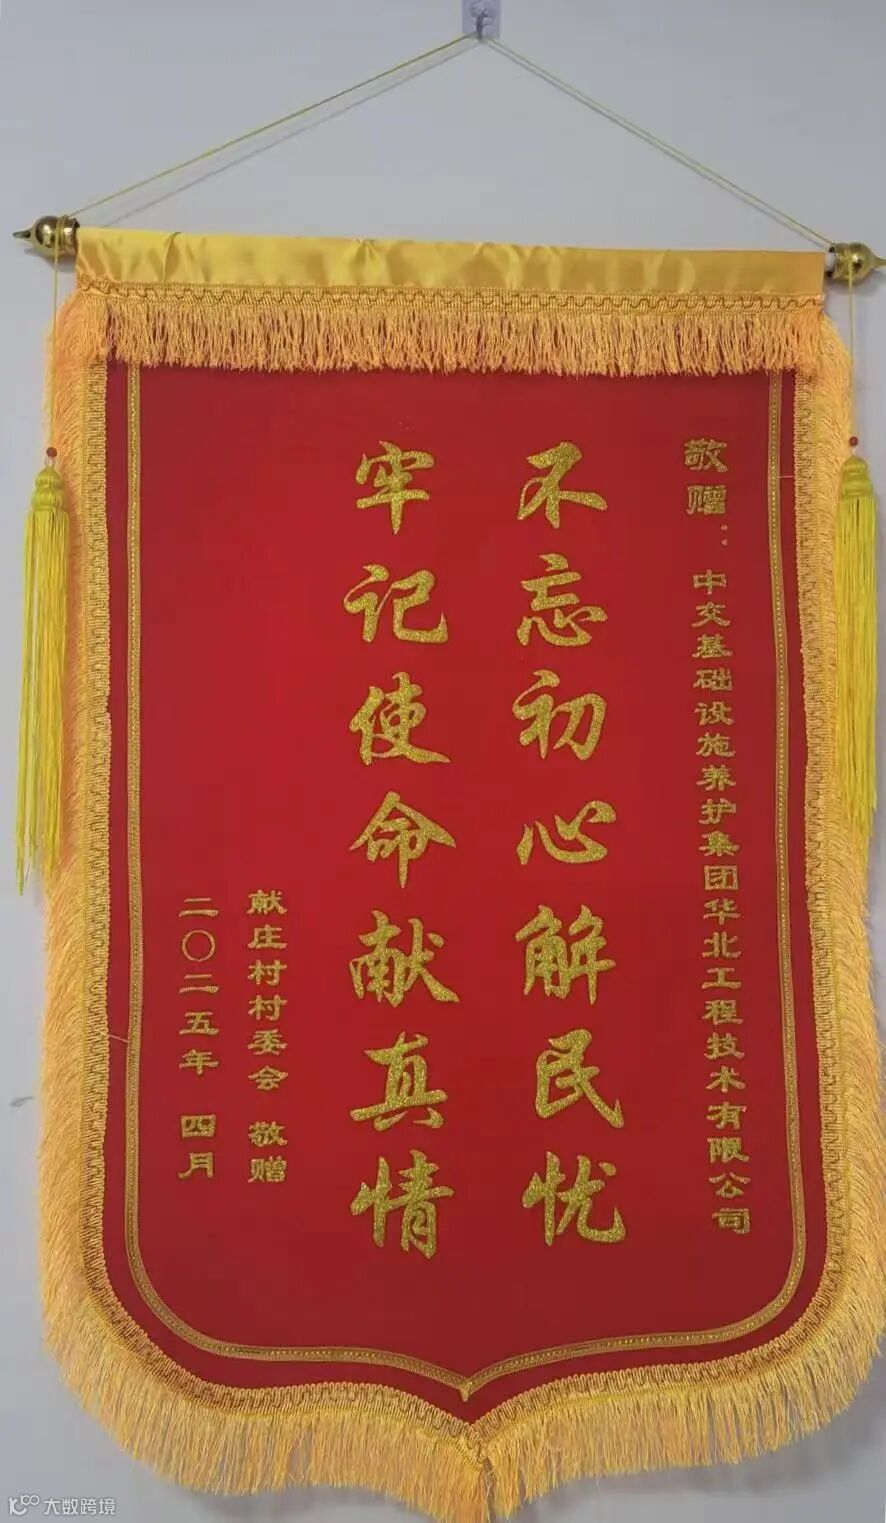 敬赠：中交基础设施养护集团华北工程技术有限公司
不忘初心解民忧
牢记使命献真情
献庄村村委会 敬赠
二〇二五年 四月
大数跨境